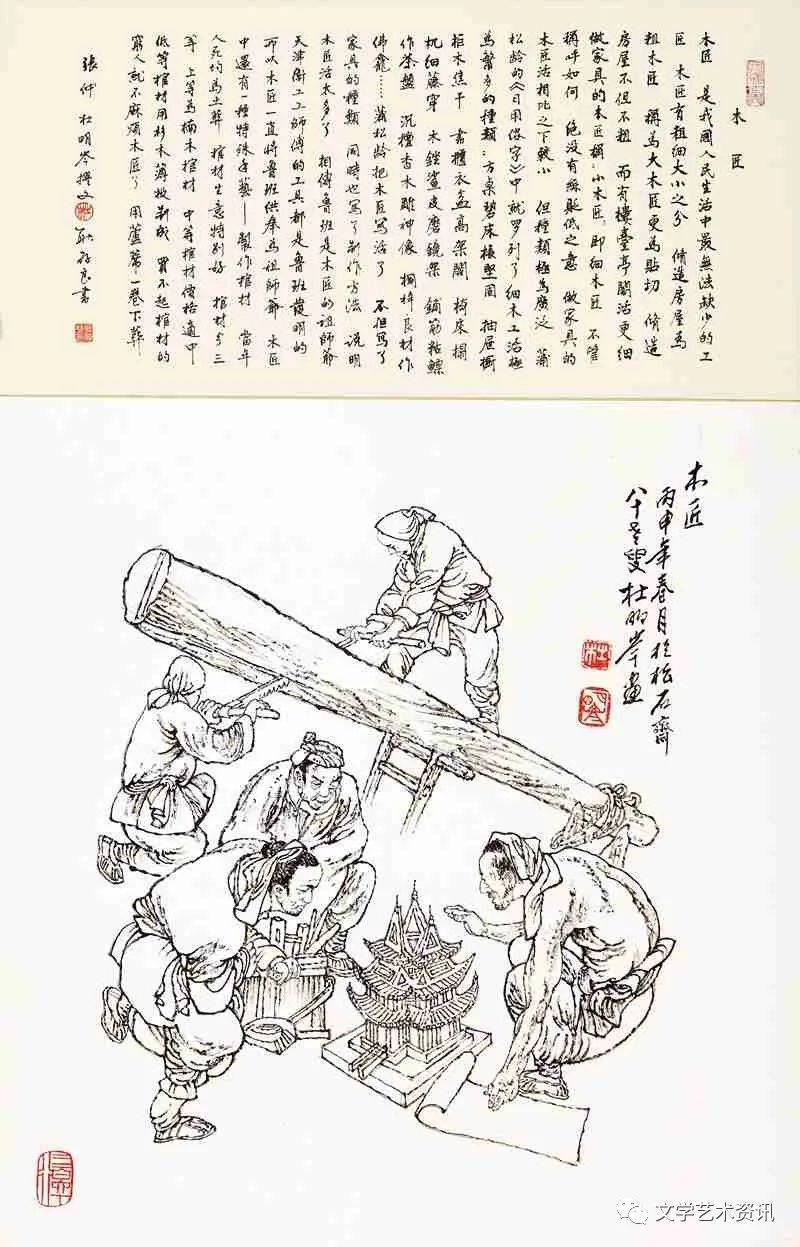 木匠
木匠 是我國人民生活中最無法缺少的工
匠 木匠有粗细大小之分 修造房屋為
粗木匠 稱為大木匠更為貼切 修造
房屋不但不粗 而有樓臺亭閣活更细
做家具的木匠稱:小木匠,即细木匠 不管
稱呼如何 绝没有編貶低之意 做家具的
木匠活相比之下较小 但種類極為廣泛 蒲
松龄的《日用俗字》中就羅列了细木工活極
為繁多的種類:方桌 床板 抽屉橱
柜木焦干 書櫃衣盒高架閣 椅床榻
杌细藤穿 木銼鯊皮磨鏡架 鋪筋粘鰾
作茶盤 沉檀香木雕神像 桐梓良材作
佛龕……蒲松龄把木匠写活了 不但写了
家具的種類 同時也写了制作方法 説明
木匠活太多了 相傳鲁班是木匠的祖師爺
天津衛工工師傅的工具都是鲁班發明的
所以木匠一直将鲁班供奉為祖師爺 木匠
中還有一種特殊手藝——製作棺材 當年
人死均為土葬 棺材生意特别好 棺材分三
等 上等為楠木棺材 中等棺材價格適中
低等棺材用杉木薄板制成 買不起棺材的
窮人就不麻烦木匠了 用蘆蓆一卷下葬
張仲 杜明岑撰文 耿 良書
木匠
丙申年春月於松石齋
八十老叟杜明岑畫
文学艺术资讯